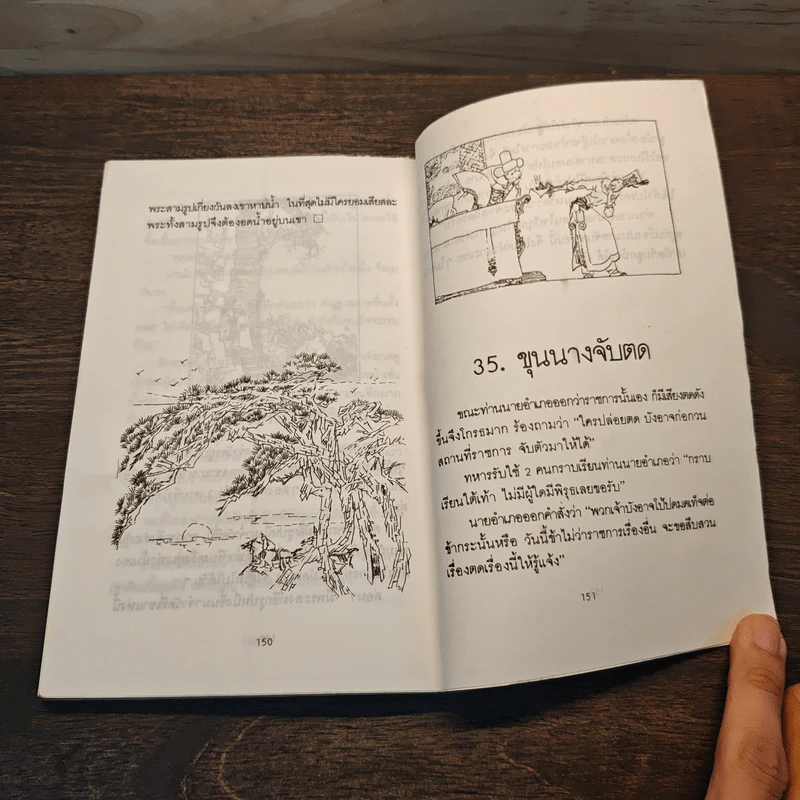 พระสามรูปเกี่ยงวันลงเขาหาบน้ำ ในที่สุดไม่มีใครยอมเสียสละ
พระทั้งสามรูปจึงต้องอดน้ำอยู่บนเขา
150
35. ขุนนางจับตด
ขณะท่านนายอำเภอออกว่าราชการนั้นเอง ก็มีเสียงตดดัง
ขึ้นจึงโกรธมาก ร้องถามว่า “ใครปล่อยตด บังอาจก่อกวน
สถานที่ราชการ จับตัวมาให้ได้”
ทหารรับใช้ 2 คนกราบเรียนท่านนายอำเภอว่า “กราบ
เรียนใต้เท้า ไม่มีผู้ใดมีพิรุธเลยขอรับ”
นายอำเภอออกคำสั่งว่า “พวกเจ้าบังอาจโป้ปดมดเท็จต่อ
ข้ากระนั้นหรือ วันนี้ข้าไม่ว่าราชการเรื่องอื่น จะขอสืบสวน
เรื่องตดเรื่องนี้ให้รู้แจ้ง”
151